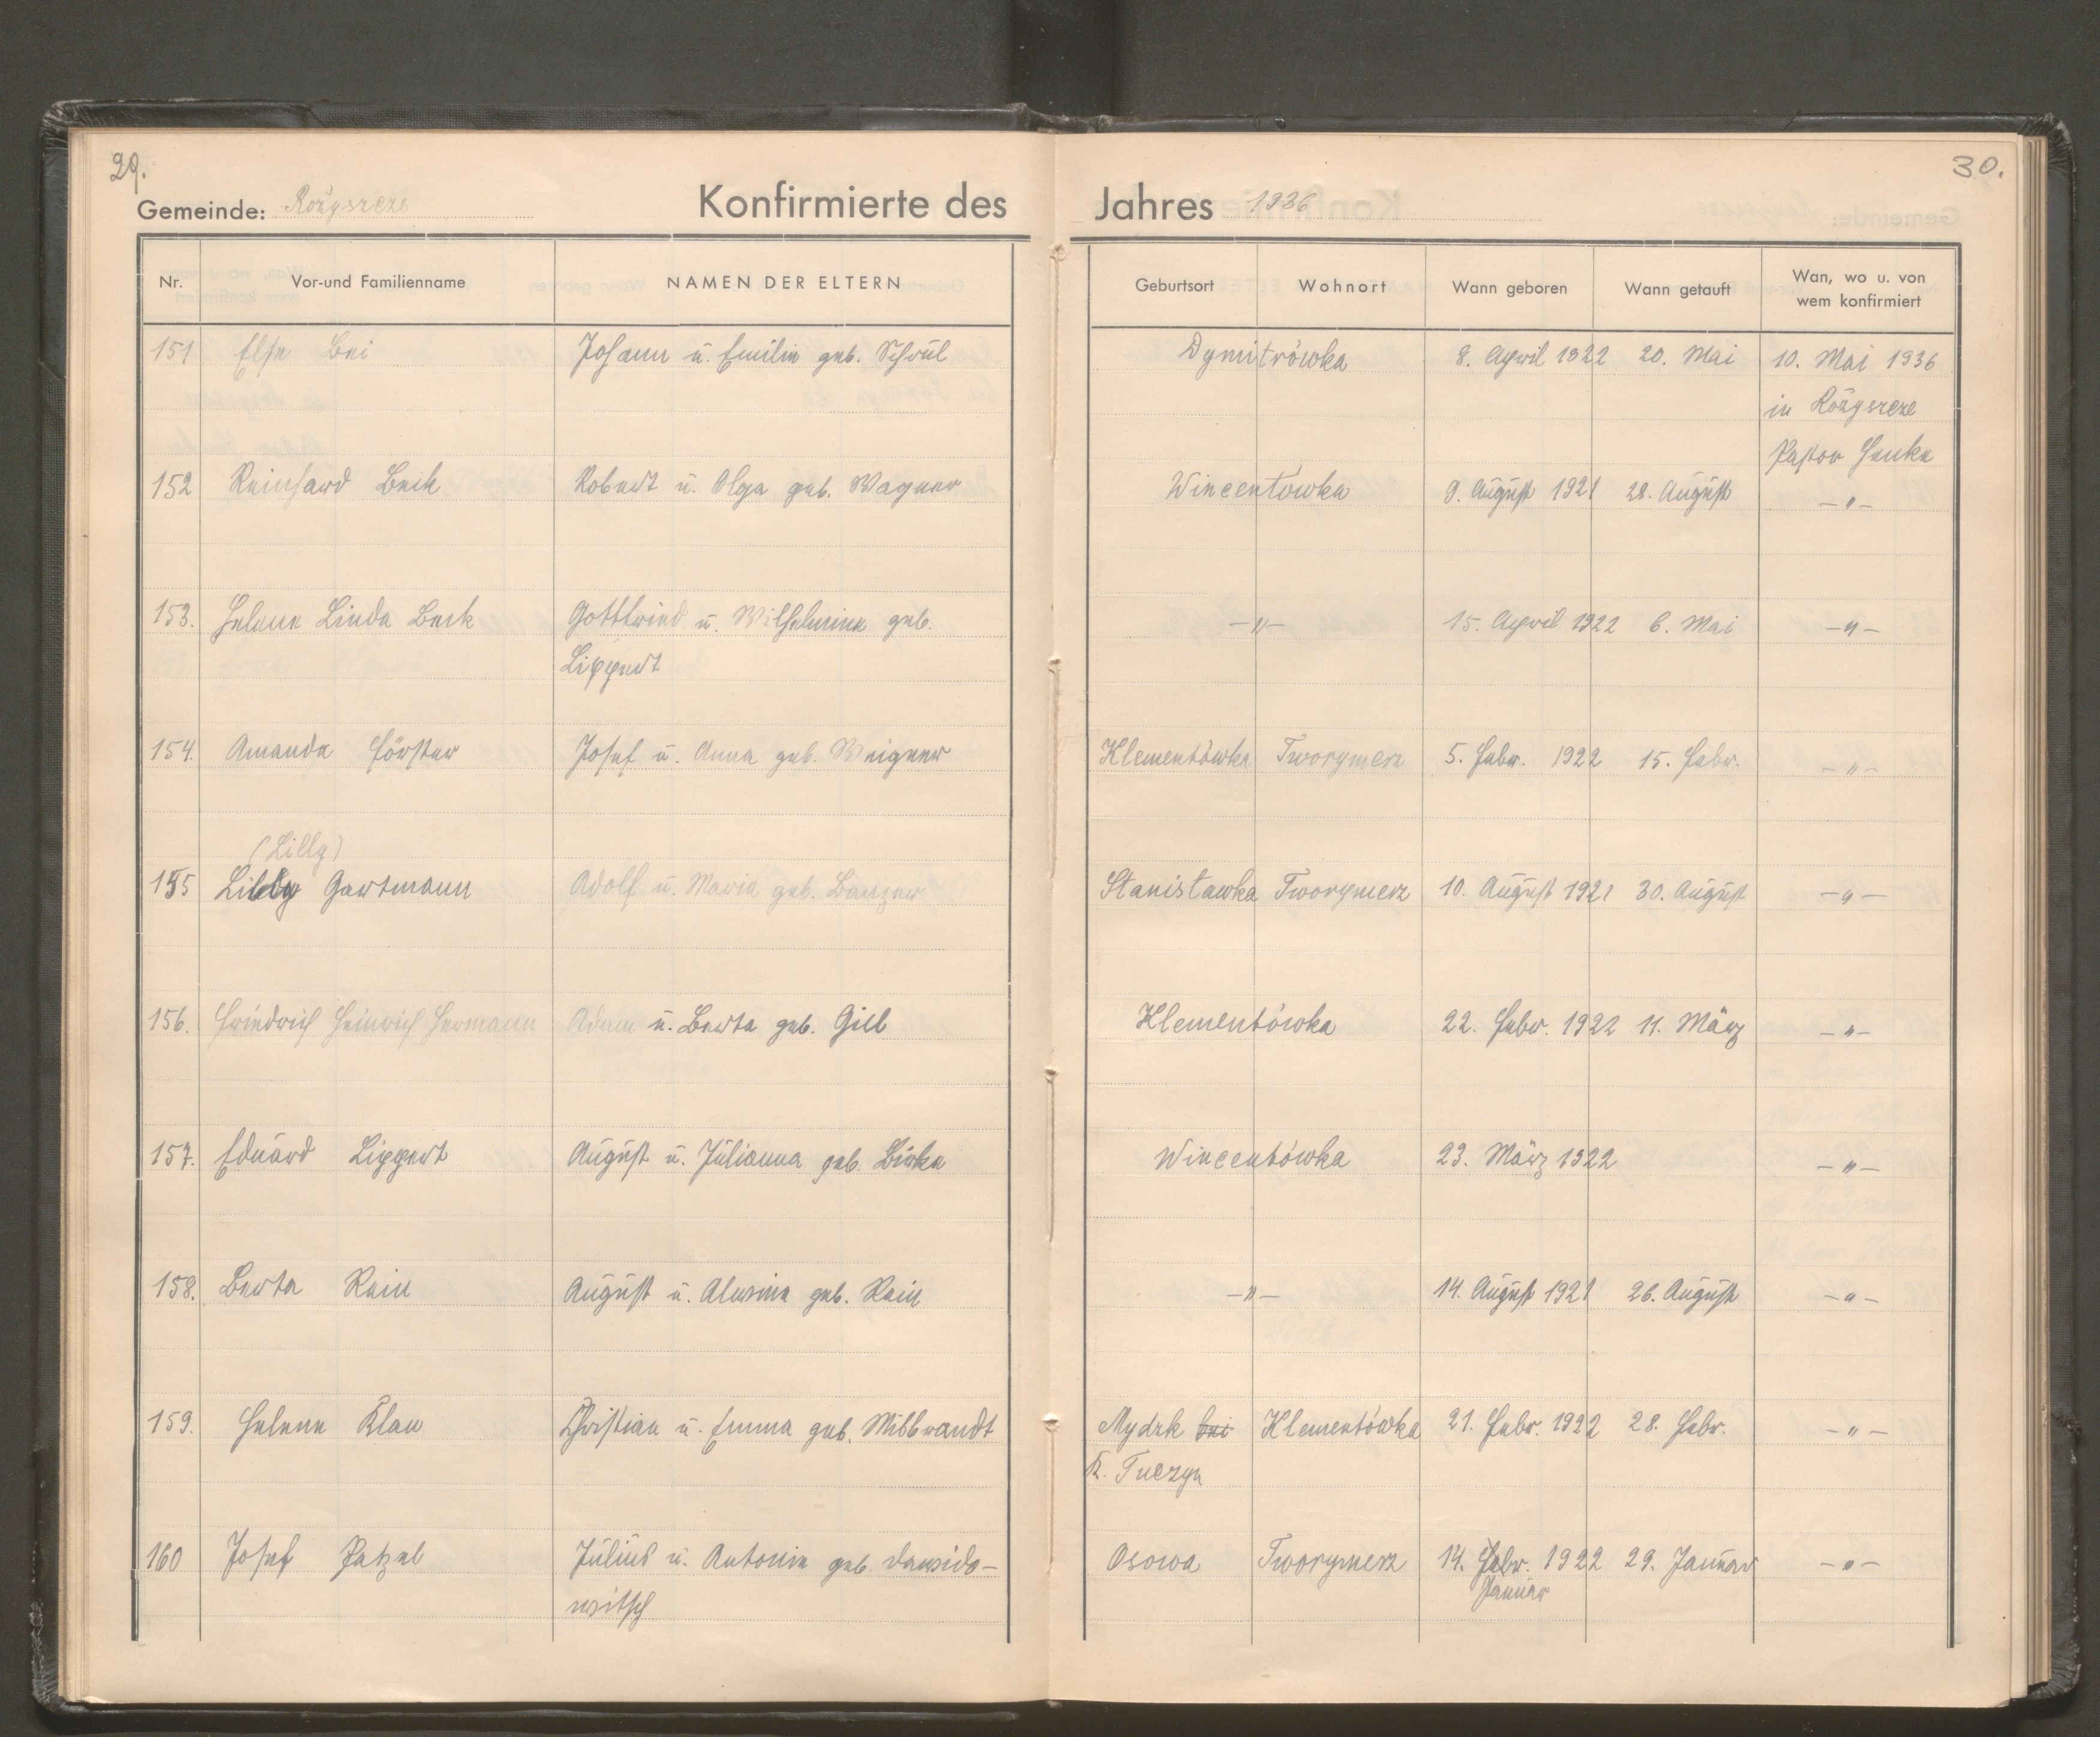 29.
Gemeinde: Rożyszcze
Konfirmierte des
Nr. Vor-und Familienname NAMEN DER ELTERN
151 Else Bei Johann u. Emilie geb. Schrul
152 Reinhard Beck Robert u. Olga geb. Wagner
153. Helene Linda Beck Gottfried u. Wilhelmine geb.
Lippert
154. Amanda Förster Josef u. Anna geb. Weigner
(Lilly)
155 Lilly Gartmann Adolf u. Maria geb. Banzer
156. Friedrich Heinrich Hermann Adam u. Berta geb. Gill
157. Eduard Lippert August u. Julianna geb. Birke
158. Berta Rein August u. Alwine geb. Rein
159. Helene Klau Christian u. Emma geb. Millbrandt
160 Josef Patzel Julius u. Antonie geb. Dawido-
witsch
30.
Jahres 1936
Geburtsort Wohnort Wann geboren Wann getauft Wan, wo u. von
wem konfirmiert
Dymitrówka 8. April 1922 20. Mai 10. Mai 1936
in Rożyszcze
Pastor Henke
Wincentówka 9. August 1921 28. August -"-
-"- 15. April 1922 6. Mai -"-
Klementówka Tworymerz 5. Febr. 1922 15. Febr. -"-
Stanisławka Tworymerz 10. August 1921 30. August -"-
Klementówka 22. Febr. 1922 11. März -"-
Wincentówka 23. März 1922 -"-
-"- 14. August 1921 26. August -"-
Mydzk bei Klementówka 21. Febr. 1922 28. Febr. -"-
K. Tuczyn
Osowa Tworymerz 14. Febr. 1922 29. Januar -"-
Januar